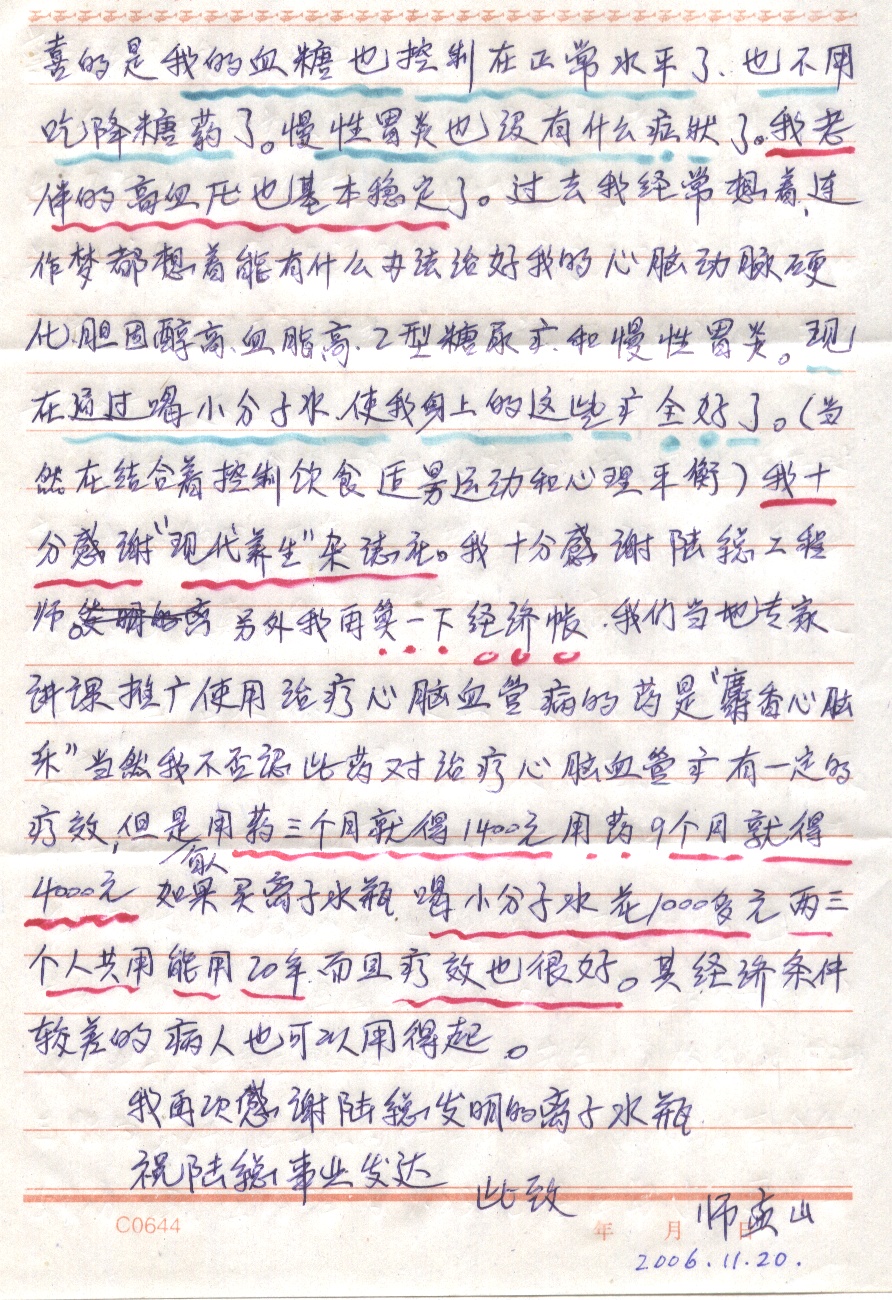 喜的是我的血糖也控制在正常水平了、也不用
吃降糖药了。慢性胃炎也没有什么症狀了。我老
伴的高血压也基本稳定了。过去我经常想着,连
作梦都想着能有什么办法治好我的心脑动脉硬
化、胆固醇高、血脂高、2型糖尿疒和慢性胃炎。现
在通过喝小分子水、使我身上的这些疒全好了。(当
然在结合着控制饮食适量运动和心理平衡)我十
分感谢"现代养生"杂誌社。我十分感谢陆総工程
师。发明的离 另外我再算一下经济帐、我们当地专家
讲课推广使用治疗心脑血管病的药是"麝香心脑
乐"当然我不否認此药对治疗心脑血管疒有一定的
疗效,但是用药三个月就得1400元用药9个月就得
4000元 如果有人买离子水瓶、喝小分子水花1000多元两三
个人共用能用20年、而且疗效也很好。其经济条件
较差的病人也可以用得起。
我再次感谢陆総发明的离子水瓶、
祝陆総事业发达
此致
C0644 年 月 日 师孟山
2006.11.20.